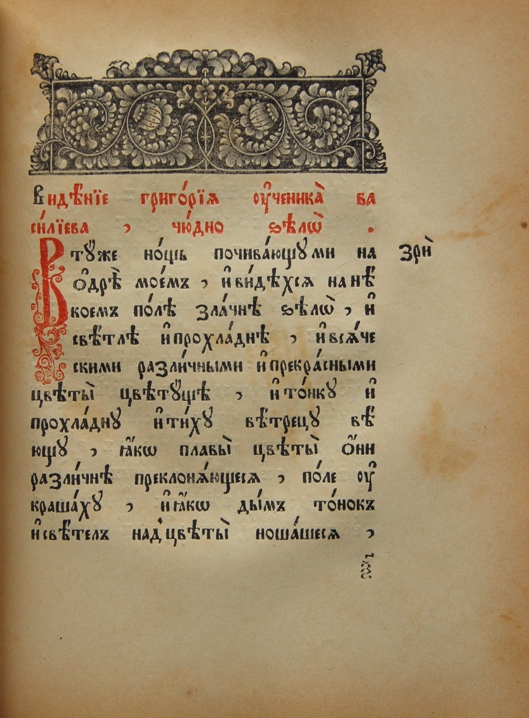 Видѣ́нїе григо́рїѧ оу҆ченика̀ ва
си́лїева , чю́дно ѕѣлѡ̀ .
Вту́же но́щь почива́ющу ми на
ѻ҆дрѣ̀ мое́мъ , и҆ви́дѣхсѧ на нѣ́
коемъ по́лѣ зла́чне ѕѣлѡ̀ , и҆
свѣ́тлѣ и҆прохла́днѣ , и҆всѧ́че
скими разли́чными и҆прекра́сными
цвѣты̀ цвѣту́щѣ , и҆то́нку и҆
прохла́дну и҆ти́ху вѣ́трецу вѣ́
ющу , ꙗ҆́кѡ плавы̀ цвѣты̀ ѻ҆́ни
разли́чнѣ преклонѧ́ющиесѧ , по́ле оу҆
краша́ху , и҆ ꙗ҆́кѡ ды́мъ то́нокъ
и҆свѣ́телъ над̾цвѣты̀ ноша́шесѧ ,
зрѝ